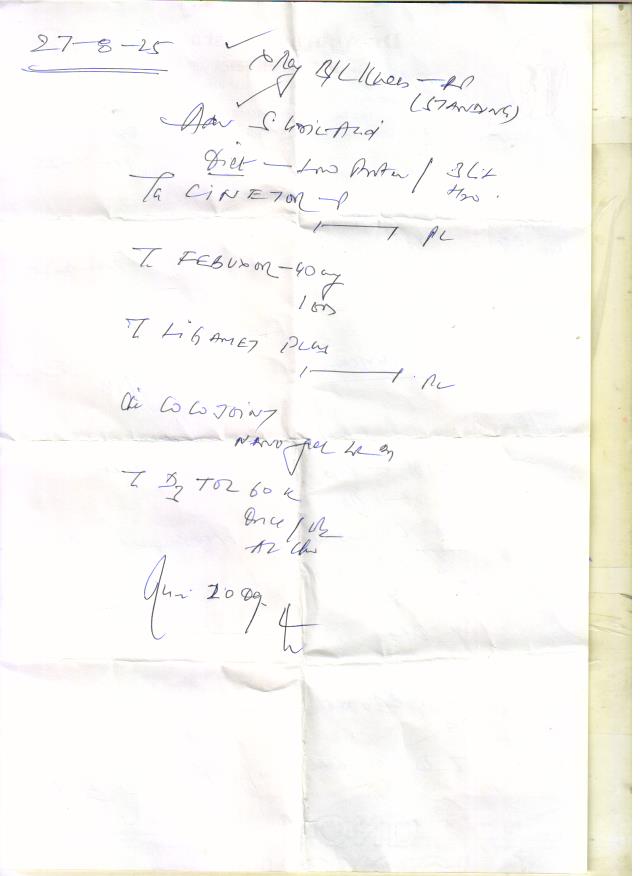 27-8-25
X Ray B/L Knees - AP
(STANDING)
Adv S. Uric Acid
Diet - Low Protein / 3 Lit
H2O.
Ta CINETOR-P
1 ———— 1 PC
T. FEBUXOR-40mg
1 OD
T LIGAMET PLUS
1 ———— 1 PC
COCOJOINT
NANO gel
T D3 TOR 60 K
Once / Wk
20 Day